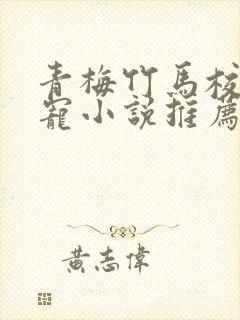 青梅竹馬校
寵小說推薦
黃志偉